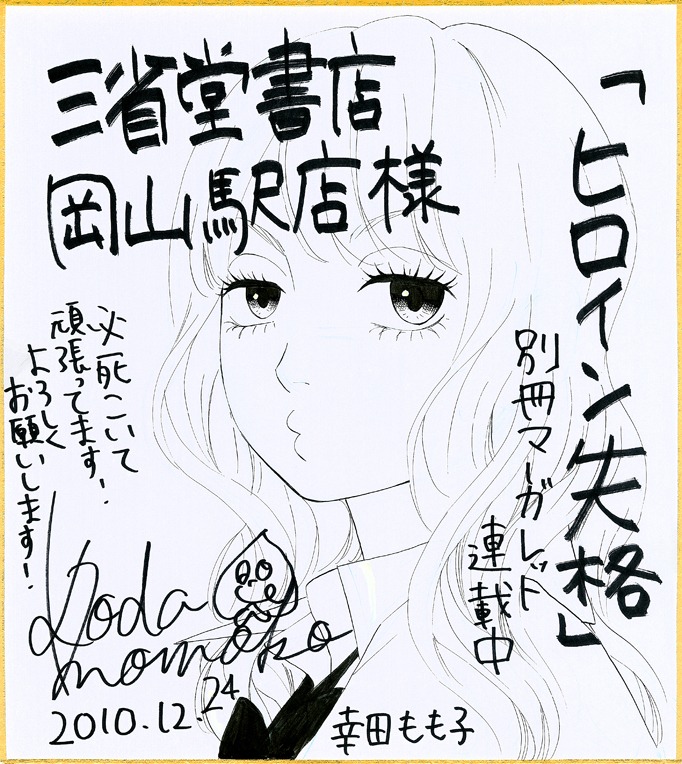 三省堂書店
岡山駅店様
「ヒロイン失格」
別冊マーガレット
連載中
必死こいて
頑張ってます!
よろしく
お願いします!
Koda
momoko
2010.12.24
幸田もも子